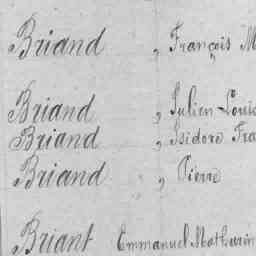 Briand , François M
Briand , Julien Louis
Briand , Isidore Fra
Briand , Pierre
Briant Emmanuel Mathurin